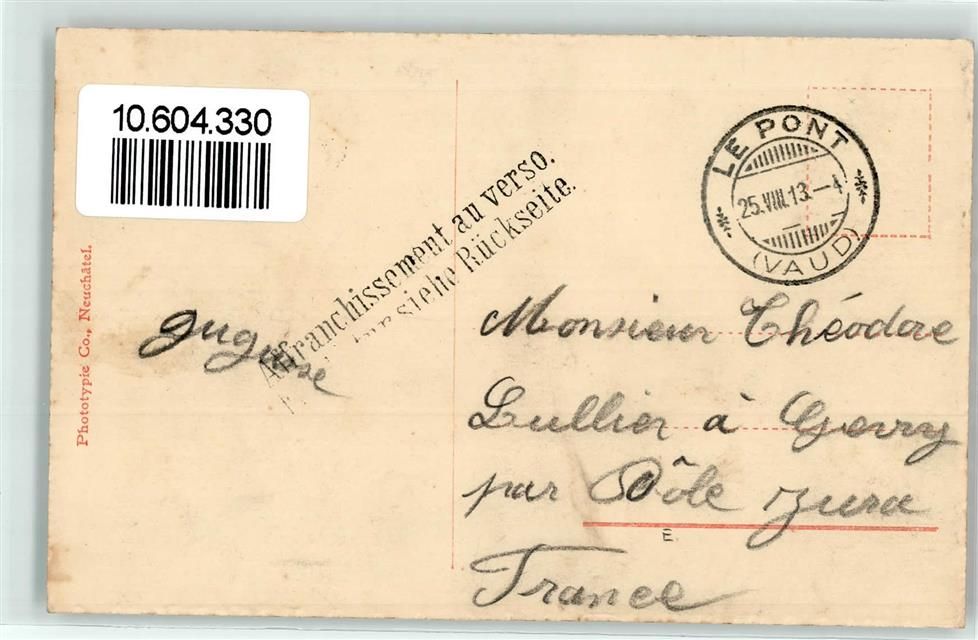 10.604.330
LE PONT
25.VIII.13.-4
(VAUD)
Affranchissement au verso.
siehe Rückseite.
Phototypie Co., Neuchâtel.
Monsieur Théodore
Lullier à Gevry
par Dôle Jura
E.
France